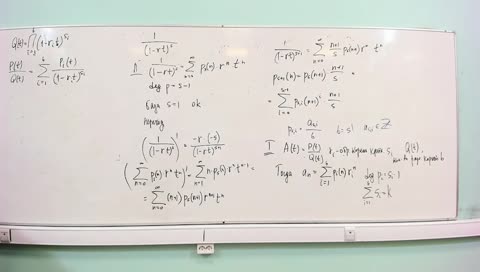 Q(t) = ∏_{i=1}^{k} (1 - r_i t)^{s_i}
P(t)/Q(t) = ∑_{i=1}^{k} P_i(t)/(1 - r_i t)^{s_i}
1/(1 - rt)^s
Л. 1/(1 - rt)^s = ∑_{n=0}^{∞} p_s(n) r^n t^n
deg p = s - 1
База s = 1 ok
(1/(1 - rt)^s)' = -r(-s)/(1 - rt)^{s+1}
(∑_{n=0}^{∞} p_s(n) r^n t^n)' = ∑_{n=1}^{∞} n p_s(n) r^n t^{n-1} =
= ∑_{n=0}^{∞} (n+1) p_s(n+1) r^{n+1} t^n
1/(1 - rt)^{s+1} = ∑_{n=0}^{∞} (n+1)/s p_s(n+1) r^n t^n
p_{s+1}(n) = p_s(n+1) (n+1)/s =
= ∑_{i=0}^{s-1} p_{s,i} (n+1)^i (n+1)/s
p_{s,i} = a_{s,i}/b b = s! a_{s,i} ∈ ℤ
T A(t) = P(t)/Q(t) r_i - обр. корни кратн. s_i Q(t),
Тогда a_n = ∑_{i=1}^{k} p_i(n) r_i^n
deg p_i = s_i - 1